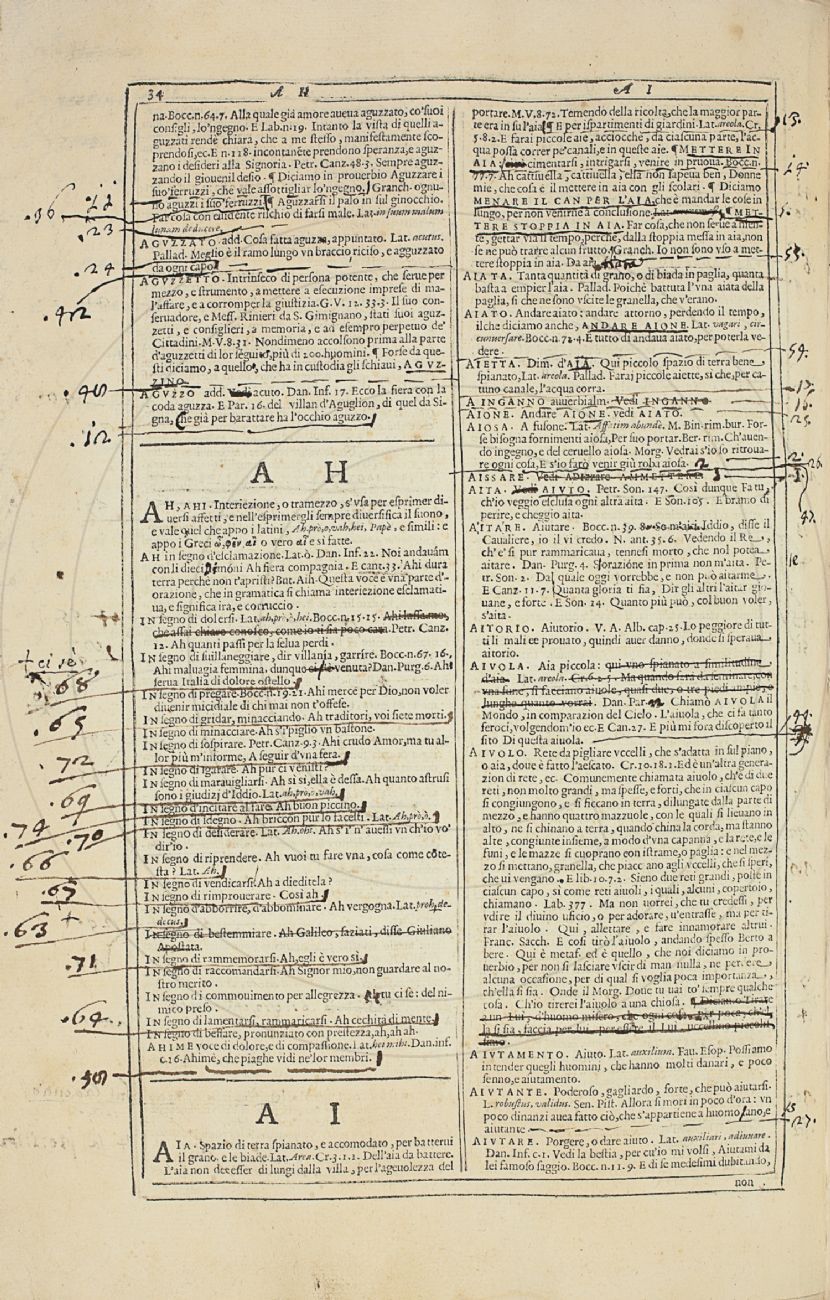 34 A H A I
na. Bocc.n.64.7. Alla quale già amore aueua aguzzato, co'suoi
consigli, lo'ngegno. E Lab.n.19. Intanto la vista di quelli a-
guzzati rende chiara, che a me stesso, manifestamente sco-
prendosi, ec. E n.118. incontanéte prendono speranza, e aguz-
zano i desideri alla Signoria. Petr. Canz.48.3. Sempre aguz-
zando il giouenil desio. ¶ Diciamo in prouerbio Aguzzare i
suo'ferruzzi, che vale assottigliar lo'ngegno. Granch. ognu-
no aguzzi i suo'ferruzzi. ¶ Aguzzarsi il palo in sul ginocchio.
Far cosa con euidente rischio di farsi male. Lat. in suum malum
lunam deducere.
AGVZZATO. add. Cosa fatta aguzza, appuntato. Lat. acutus.
Pallad. Meglio è il ramo lungo vn braccio riciso, e agguzzato
da ogni capo.
AGVZZETTO. Intrinseco di persona potente, che serue per
mezzo, e strumento, a mettere a esecuzione imprese di ma-
l'affare, e a corromper la giustizia. G.V. 12. 33.3. Il suo con-
seruadore, e Mess. Rinieri da S. Gimignano, stati suoi aguz-
zetti, e consiglieri, a memoria, e ad esempro perpetuo de'
Cittadini. M.V.8.31. Nondimeno accolsono prima alla parte
d'aguzzetti di lor seguito, più di 200.huomini. ¶ Forse da que-
sti diciamo, a quello, che ha in custodia gli schiaui, AGVZ-
ZINO.
AGVZZO add. Vedi acuto. Dan. Inf. 17. Ecco la fiera con la
coda aguzza. E Par. 16. del villan d'Aguglion, di quel da Si-
gna, Che già per barattare ha l'occhio aguzzo.
A H
AH, AHI. Interiezione, o tramezzo, s'vsa per esprimer di-
uersi affetti, e nell'esprimergli sempre diuersifica il suono,
e vale quel che appo i latini, Ah, prò, o, vah, hei, Papè, e simili: e
appo i Greci ὢ, φεῦ, αἲ o vero αἲ e sì fatte.
AH in segno d'esclamazione. Lat. ò. Dan. Inf. 22. Noi andauám
con li dieci demóni Ah fiera compagnia. E cant.33. Ahi dura
terra perchè non t'apristi? But. Aih. Questa voce è vna parte d'-
orazione, che in gramatica si chiama interiezione esclamati-
ua, e significa ira, e corruccio.
IN segno di dolersi. Lat. ah, prò, hei. Bocc.n.15.15. Ahi lassa me,
che assai chiaro conosco, come io ti sia poco cara. Petr. Canz.
12. Ah quanti passi per la selua perdi.
IN segno di suillaneggiare, dir villania, garrire. Bocc.n.67.16.
Ahi maluagia femmina, dunque se' venuta? Dan. Purg.6. Ahi
serua Italia di dolore ostello.
IN segno di pregare. Bocc.n.19.21. Ahi mercè per Dio, non voler
diuenir micidiale di chi mai non t'offese.
IN segno di gridar, minacciando. Ah traditori, voi siete morti.
IN segno di minacciare. Ah s'i'piglio vn bastone.
IN segno di sospirare. Petr. Canz.9.3. Ahi crudo Amor, ma tu al-
lor più m'informe, A seguir d'vna fera.
IN segno di sgarare. Ah pur ci venisti.
IN segno di marauigliarsi. Ah sì sì, ella è dessa. Ah quanto astrusi
sono i giudizj d'Iddio. Lat. ah, prò, o, vah.
IN segno d'incitare al fare. Ah buon piccino.
IN segno di sdegno. Ah briccon pur lo facesti. Lat. Ah, prò, ò.
IN segno di desiderare. Lat. Ah, oh. Ah s'i' n' auessi vn ch'io vo'
dir'io.
IN segno di riprendere. Ah vuoi tu fare vna, cosa come cóte-
sta? Lat. Ah.
IN segno di vendicarsi. Ah a dieditela?
IN segno di rimprouerare. Così ah.
IN segno d'abborrire, d'abbominare. Ah vergogna. Lat. proh, de-
decus.
IN segno di bestemmiare. Ah Galileo, saziati, disse Giuliano
Apostata.
IN segno di rammemorarsi. Ah, egli è vero sì.
IN segno di raccomandarsi. Ah Signor mio, non guardare al no-
stro merito.
IN segno di commouimento per allegrezza. Ah tu ci sè: del ni-
mico preso.
IN segno di lamentarsi, rammaricarsi. Ah cechità di mente.
IN segno di beffare, pronunziato con prestezza, ah, ah ah.
AHIME voce di dolore, e di compassione. Lat. hei mihi. Dan. inf.
c.16. Ahimè, che piaghe vidi ne'lor membri.
A I
AIA. Spazio di terra spianato, e accomodato, per batterui
il grano, e le biade. Lat. Area. Cr. 3.1.2. Dell'aia da battere.
L'aia non dee esser di lungi dalla villa, per l'ageuolezza del
portare. M.V.8.72. Temendo della ricolta, che la maggior par-
te era in su l'aia. ¶ E per ispartimenti di giardini. Lat. areola. Cr.
5.8.2. E farai piccole aie, acciocchè, da ciascuna parte, l'ac-
qua possa correr pe'canali, e in queste aie. ¶ METTERE IN
AIA: cimentarsi, intrigarsi, venire in pruoua. Bocc.n.
77.7. Ah cattiuella, cattiuella, ella non sapeua ben, Donne
mie, che cosa è il mettere in aia con gli scolari. ¶ Diciamo
MENARE IL CAN PER L'AIA, che è mandar le cose in
lungo, per non venirne a conclusione. ¶ MET-
TERE STOPPIA IN AIA. Far cosa, che non serue a nien-
te, gettar via il tempo, perchè, dalla stoppia messa in aia, non
se ne può trarre alcun frutto. Granch. Io non sono vso a met-
tere stoppia in aia. Da
AIATA. Tanta quantità di grano, o di biada in paglia, quanta
basta a empier l'aia. Pallad. Poichè battuta l'vna aiata della
paglia, si che ne sono vscite le granella, che v'erano.
AIATO. Andare aiato: andare attorno, perdendo il tempo,
il che diciamo anche, ANDARE AIONE. Lat. vagari, cir-
cunuersare. Bocc.n.72.4. E tutto dì andaua aiato, per poterla ve-
dere.
AIETTA. Dim. d'AIA. Qui piccolo spazio di terra bene
spianato, Lat. areola. Pallad. Farai piccole aiette, si che, per ca-
tuno canale, l'acqua corra.
A INGANNO auuerbialm. Vedi INGANNO.
AIONE. Andare AIONE. vedi AIATO.
AIOSA. A fusone. Lat. Affatim abundè. M. Bin. rim. bur. For-
se bisogna fornimenti aiosa, Per suo portar. Ber. rim. Ch'auen-
do ingegno, e del ceruello aiosa. Morg. Vedrai s'io so ritroua-
re ogni cosa, E s'io farò venir giù roba aiosa. 2
AISSARE. Vedi ADIZZARE AMMETTERE.
AITA. Vedi AIVTO. Petr. Son. 147. Così dunque Fa tu,
ch'io veggio esclusa ogni altra aita. E Son.105. E bramo di
perire, e cheggio aita.
AITARE. Aiutare. Bocc.n.39.8. Iddio, disse il
Caualiere, io il vi credo. N. ant. 35.6. Vedendo il Re,
ch'e' si pur rammaricaua, tennesi morto, che nol potea
aitare. Dan. Purg. 4. S'orazióne in prima non m'aita. Pe-
tr. Son. 2. Dal quale oggi vorrebbe, e non può aitarme.
E Canz. 11. 7. Quanta gloria ti fia, Dir gli altri l'aitar gio-
uane, e forte. E Son. 14. Quanto più può, col buon voler,
s'aita.
AITORIO. Aiutorio. V. A. Alb. cap.25. Lo peggiore di tut-
ti li mali è prouato, quindi auer danno, donde si speraua
aitorio.
AIVOLA. Aia piccola: qui vno spianato a similitudine
d'aia. Lat. areola. Cr. 6.2.5. Ma quando sarà da seminare, con
vna fune, si facciano aiuole, quasi due, o tre piedi ampie, o
lunghe quanto vorrai. Dan. Par. 22 Chiamò AIVOLA il
Mondo, in comparazion del Cielo. L'aiuola, che ci fa tanto
feroci, volgendom'io ec. E Can. 27. E più mi fora discouerto il
sito Di questa aiuola.
AIVOLO. Rete da pigliare vccelli, che s'adatta in sul piano,
o aia, doue è fatto l'aescato. Cr. 10.18.1. Ed è vn'altra genera-
zion di rete, ec. Comunemente chiamata aiuolo, ch'è di due
reti, non molto grandi, ma spesse, e forti, che in ciascun capo
si congiungono, e si ficcano in terra, dilungate dalla parte di
mezzo, e hanno quattro mazzuole, con le quali si lieuano in
alto, ne si chinano a terra, quando china la corda, ma stanno
alte, congiunte insieme, a modo d'vna capanna, e la rete, e le
funi, e le mazze si cuoprano con istrame, o paglia: e nel mez-
zo si mettano, granella, che piacciano agli vccelli, che si speri,
che ui vengano. E lib. 10.7.2. Sieno due reti grandi, poste in
ciascun capo, sì come reti aiuoli, i quali, alcuni, copertoio,
chiamano. Lab. 377. Ma non uorrei, che tu credessi, per
vdire il diuino uficio, o per adorare, u'entrasse, ma per ti-
rar l'aiuolo. Qui, allettare, e fare innamorare altrui.
Franc. Sacch. E così tirò l'aiuolo, andando spesso Berto a
bere. Qui è metaf. ed è quello, che noi diciamo in pro-
uerbio, per non si lasciare vscir di man nulla, ne perdere
alcuna occasione, per di qual si voglia poca importanza,
ch'ella si sia. Onde il Morg. Doue tu uai to' sempre qualche
cosa. Ch'io tirerei l'aiuolo a una chiosa. ¶ Dicano Tirare
a un Lui, d'huomo misero, che ogni cosa, Per poca, ch'el-
la si sia, faccia per lui, per essere il Lui, vccellino piccolis-
simo.
AIVTAMENTO. Aiuto. Lat. auxilium. Fau. Esop. Possiamo
intender quegli huomini, che hanno molti danari, e poco
senno, e aiutamento.
AIVTANTE. Poderoso, gagliardo, forte, che può aiutarsi.
L. robustus, validus. Sen. Pist. Allora si mori in poco d'ora: vn
poco dinanzi auea fatto ciò, che s'appartiene a huomo sano, e
aiutante
AIVTARE. Porgere, o dare aiuto. Lat. auxiliari, adiuuare.
Dan. Inf. c.1. Vedi la bestia, per cu'io mi volsi, Aiutami da
lei famoso saggio. Bocc. n.11.9. E di se medesimi dubitando,
non
.36
.22
.23
.24
.42
.40
.12
+ ci sè
.68
.65
.72
.69
.74 .70
.66
.67
.63 +
.71
.64
.50
13.
55.
59.
17.
25.
2.
27.